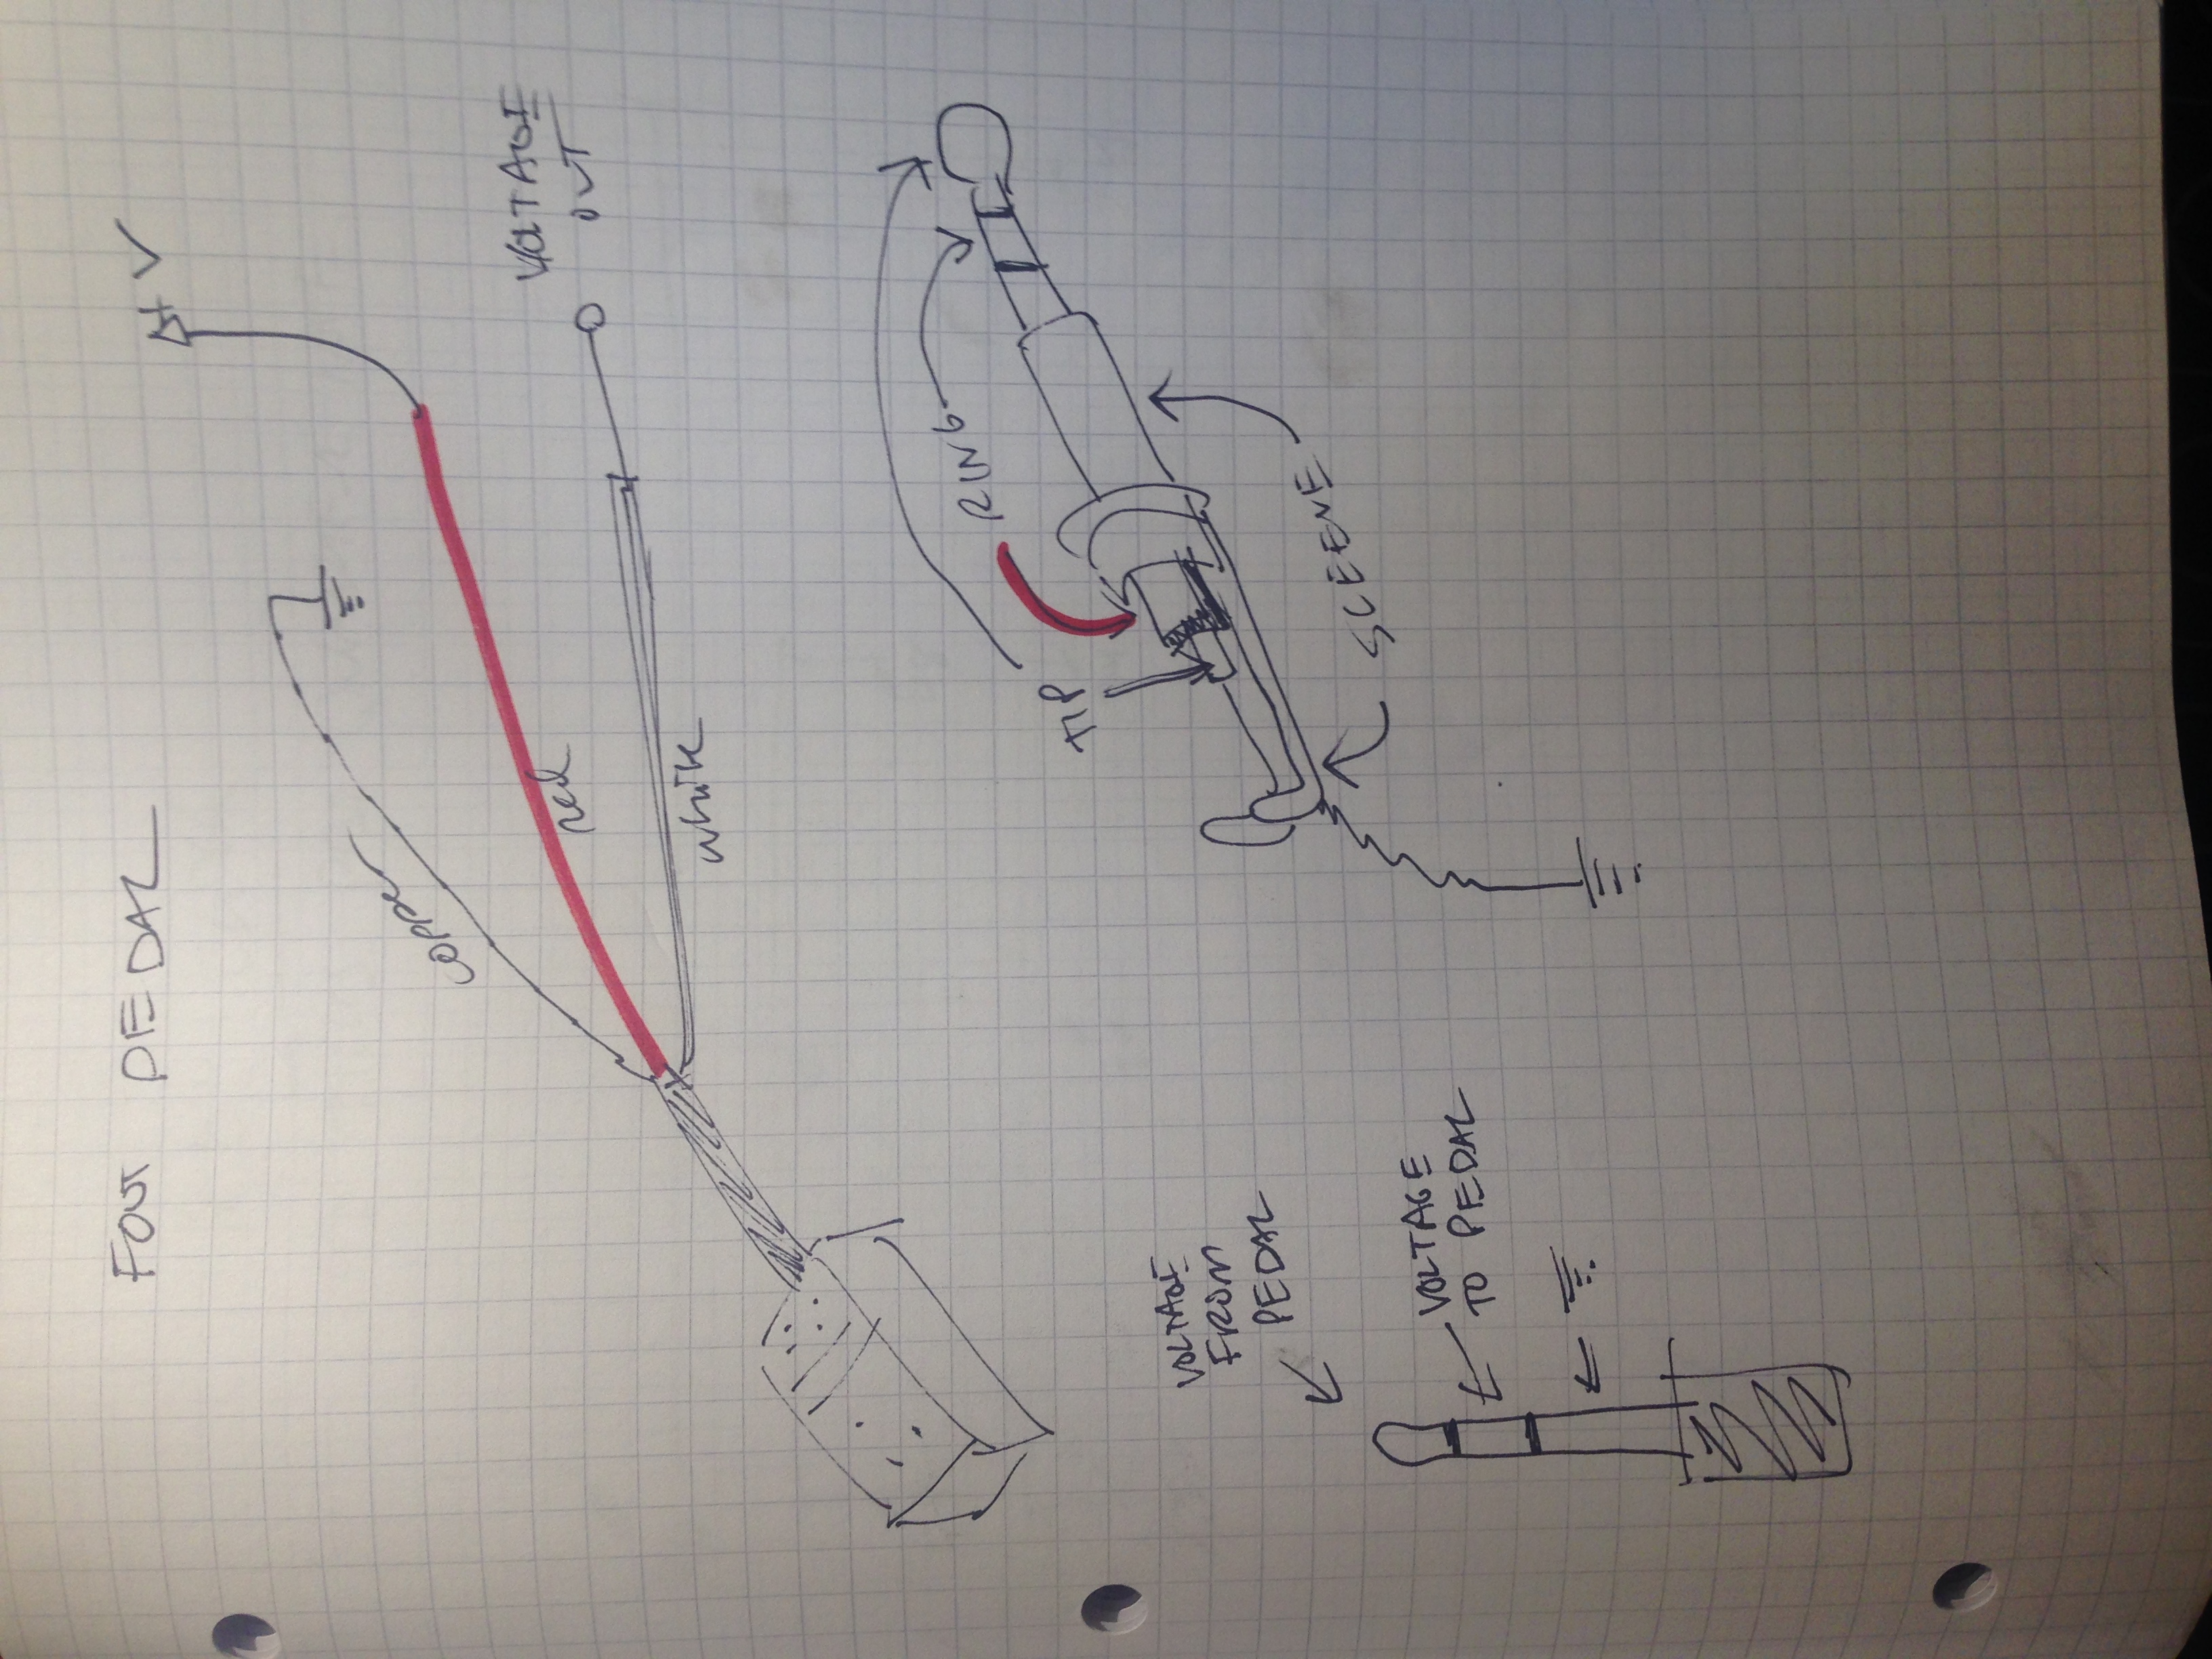 FOUT PEDAL
+V
copper
red
VOLTAGE
OUT
white
RING
TIP
SLEEVE
VOLTAGE
FROM
PEDAL
VOLTAGE
TO PEDAL